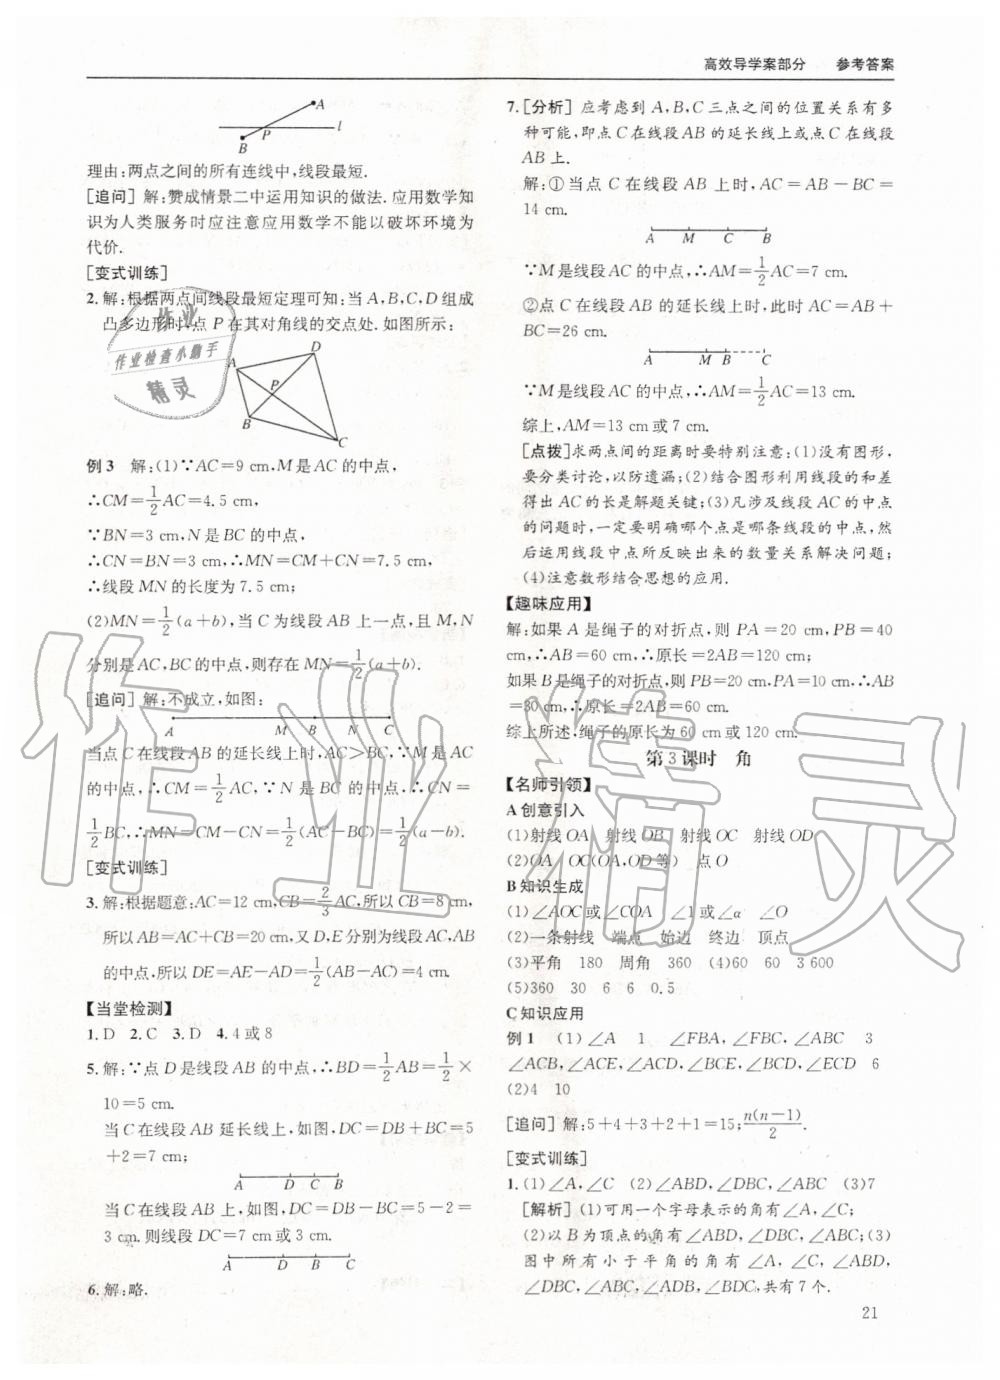 高效导学案部分　参考答案
A
P
l
B
理由:两点之间的所有连线中,线段最短.
[追问] 解:赞成情景二中运用知识的做法.应用数学知
识为人类服务时应注意应用数学不能以破坏环境为
代价.
[变式训练]
2.解:根据两点间线段最短定理可知:当 A,B,C,D 组成
凸多边形时,点 P 在其对角线的交点处.如图所示:
A
D
P
B
C
例 3　解:(1)∵AC=9 cm,M 是 AC 的中点,
∴CM=1/2AC=4.5 cm,
∵BN=3 cm,N 是 BC 的中点,
∴CN=BN=3 cm,∴MN=CM+CN=7.5 cm,
∴线段 MN 的长度为 7.5 cm;
(2)MN=1/2(a+b),当 C 为线段 AB 上一点,且 M,N
分别是 AC,BC 的中点,则存在 MN=1/2(a+b).
[追问] 解:不成立,如图:
A　M　B　N　C
当点 C 在线段 AB 的延长线上时,AC>BC,∵M 是 AC
的中点,∴CM=1/2AC,∵N 是 BC 的中点,∴CN=
1/2BC,∴MN=CM−CN=1/2(AC−BC)=1/2(a−b).
[变式训练]
3.解:根据题意:AC=12 cm,CB=2/3AC,所以 CB=8 cm,
所以 AB=AC+CB=20 cm,又 D,E 分别为线段 AC,AB
的中点,所以 DE=AE−AD=1/2(AB−AC)=4 cm.
【当堂检测】
1.D　2.C　3.D　4.4 或 8
5.解:∵点 D 是线段 AB 的中点,∴BD=1/2AB=1/2×
10=5 cm.
当 C 在线段 AB 延长线上,如图,DC=DB+BC=5
+2=7 cm;
A　D　C　B
当 C 在线段 AB 上,如图,DC=DB−BC=5−2=
3 cm.则线段 DC=7 cm 或 3 cm.
A　D　B　C
6.解:略.
7.[分析] 应考虑到 A,B,C 三点之间的位置关系有多
种可能,即点 C 在线段 AB 的延长线上或点 C 在线段
AB 上.
解:①当点 C 在线段 AB 上时,AC=AB−BC=
14 cm.
A　M　C　B
∵M 是线段 AC 的中点,∴AM=1/2AC=7 cm.
②点 C 在线段 AB 的延长线上时,此时 AC=AB+
BC=26 cm.
A　M　B　C
∵M 是线段 AC 的中点,∴AM=1/2AC=13 cm.
综上,AM=13 cm 或 7 cm.
[点拨]求两点间的距离时要特别注意:(1)没有图形,
要分类讨论,以防遗漏;(2)结合图形利用线段的和差
得出 AC 的长是解题关键;(3)凡涉及线段 AC 的中点
的问题时,一定要明确哪个点是哪条线段的中点,然
后运用线段中点所反映出来的数量关系解决问题;
(4)注意数形结合思想的应用.
【趣味应用】
解:如果 A 是绳子的对折点,则 PA=20 cm,PB=40
cm,∴AB=60 cm,∴原长=2AB=120 cm;
如果 B 是绳子的对折点,则 PB=20 cm,PA=10 cm,∴AB
=30 cm,∴原长=2AB=60 cm.
综上所述,绳子的原长为 60 cm 或 120 cm.
第 3 课时　角
【名师引领】
A 创意引入
(1)射线 OA　射线 OB　射线 OC　射线 OD
(2)OA　OC(OA,OD 等)　点 O
B 知识生成
(1)∠AOC 或∠COA　∠1 或∠α　∠O
(2)一条射线　端点　始边　终边　顶点
(3)平角　180　周角　360　(4)60　60　3 600
(5)360　30　6　6　0.5
C 知识应用
例 1　(1)∠A　1　∠FBA,∠FBC,∠ABC　3
∠ACB,∠ACE,∠ACD,∠BCE,∠BCD,∠ECD　6
(2)4　10
[追问] 解:5+4+3+2+1=15;n(n−1)/2.
[变式训练]
1.(1)∠A,∠C　(2)∠ABD,∠DBC,∠ABC　(3)7
[解析] (1)可用一个字母表示的角有∠A,∠C;
(2)以 B 为顶点的角有∠ABD,∠DBC,∠ABC;(3)
图中所有小于平角的角有∠A,∠C,∠ABD,
∠DBC,∠ABC,∠ADB,∠BDC,共有 7 个.
21
作业
作业检查小助手
精灵
作业精灵